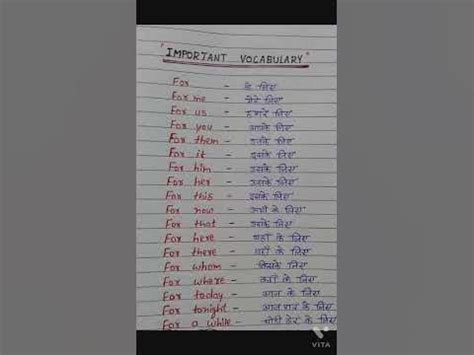 "IMPORTANT VOCABULARY"
For - के लिए
For me - मेरे लिए
For us - हमारे लिए
For you - आपके लिए
For them - उनके लिए
For it - इसके लिए
For him - उसके लिए
For her - उसके लिए
For this - इसके लिए
For now - अभी के लिए
For that - उसके लिए
For here - यहाँ के लिए
For there - वहाँ के लिए
For whom - किसके लिए
For where - कहाँ के लिए
For today - आज के लिए
For tonight - आज रात के लिए
For a while - थोड़ी देर के लिए
VITA